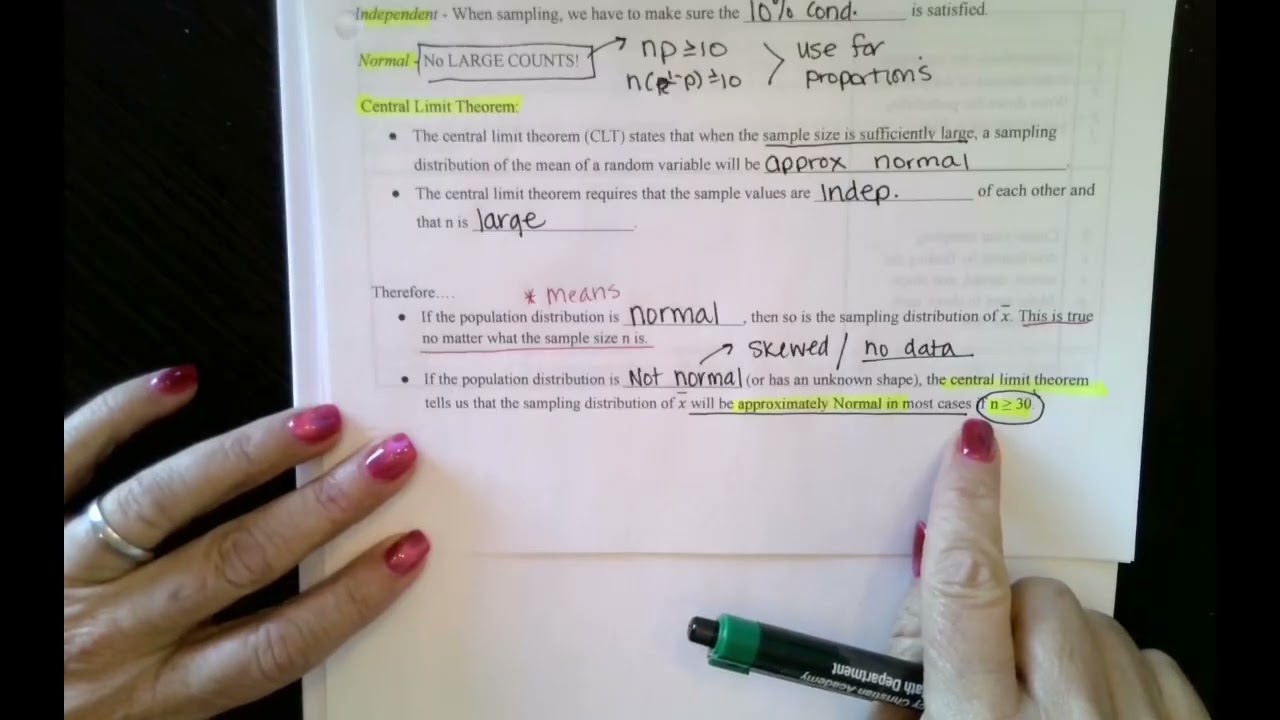 Independent - When sampling, we have to make sure the 10% Cond. is satisfied.
Normal - No LARGE COUNTS! np ≥ 10 use for
n(1-p) ≥ 10 proportions
Central Limit Theorem:
• The central limit theorem (CLT) states that when the sample size is sufficiently large, a sampling
distribution of the mean of a random variable will be approx normal.
• The central limit theorem requires that the sample values are Indep. of each other and
that n is large.
Therefore…. * means
• If the population distribution is normal, then so is the sampling distribution of x̄. This is true
no matter what the sample size n is.
skewed / no data
• If the population distribution is Not normal (or has an unknown shape), the central limit theorem
tells us that the sampling distribution of x̄ will be approximately Normal in most cases if n ≥ 30.
Christian Academy
Math Department